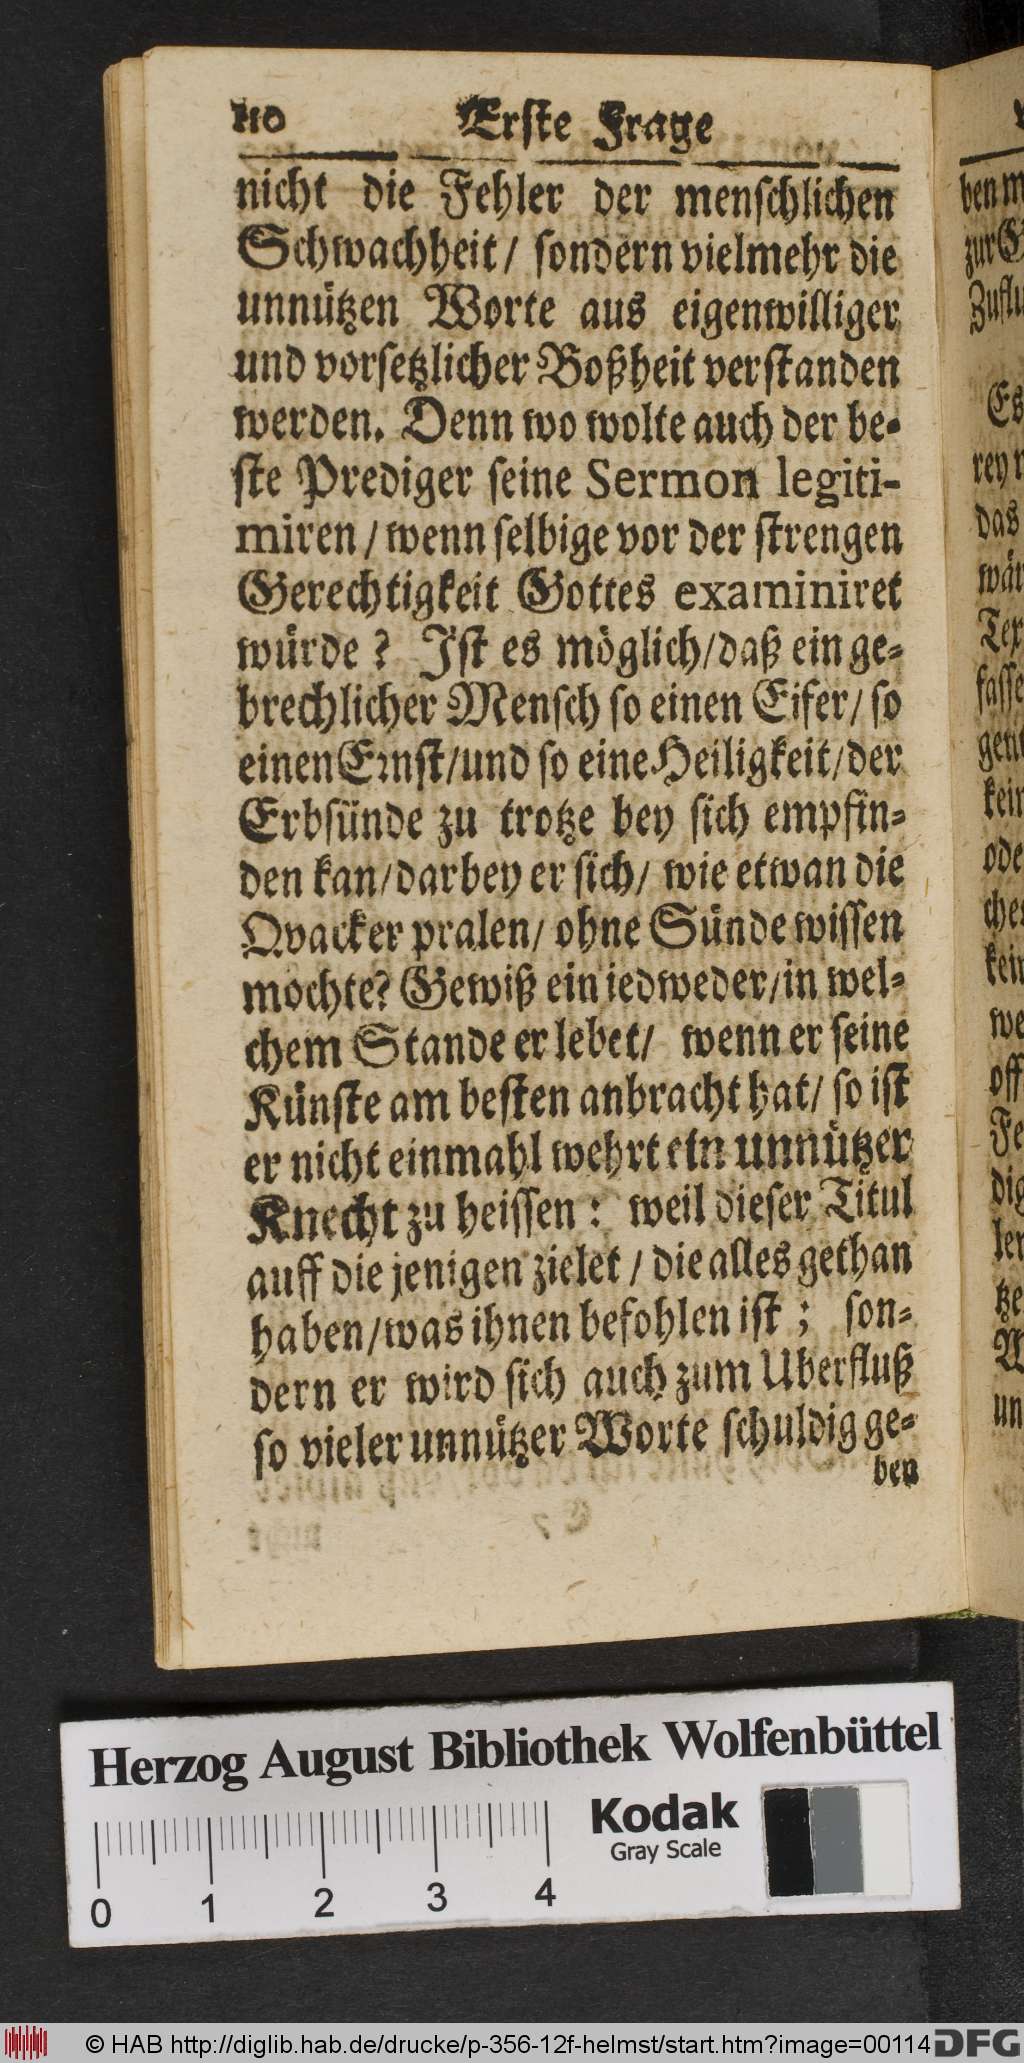 110 Erste Frage
nicht die Fehler der menschlichen
Schwachheit/ sondern vielmehr die
unnützen Worte aus eigenwilliger
und vorsetzlicher Boßheit verstanden
werden. Denn wo wolte auch der be-
ste Prediger seine Sermon legiti-
miren / wenn selbige vor der strengen
Gerechtigkeit Gottes examiniret
würde? Ist es möglich/daß ein ge-
brechlicher Mensch so einen Eifer/ so
einen Ernst/und so eine Heiligkeit/der
Erbsünde zu trotze bey sich empfin-
den kan/darbey er sich/ wie etwan die
Qvacker pralen/ ohne Sünde wissen
mochte? Gewiß ein iedweder/in wel-
chem Stande er lebet/ wenn er seine
Künste am besten anbracht hat/ so ist
er nicht einmahl wehrt ein unnützer
Knecht zu heissen: weil dieser Titul
auff die jenigen zielet / die alles gethan
haben/was ihnen befohlen ist; son-
dern er wird sich auch zum Uberfluß
so vieler unnützer Worte schuldig ge-
ben
ben m
zur G
Zuflu
Es
rey
das
wär
Tex
fasse
gent
kein
ode
che
kein
we
off
Fe
dig
ler
tze
un
Herzog August Bibliothek Wolfenbüttel
Kodak
Gray Scale
0 1 2 3 4
© HAB http://diglib.hab.de/drucke/p-356-12f-helmst/start.htm?image=00114
DFG